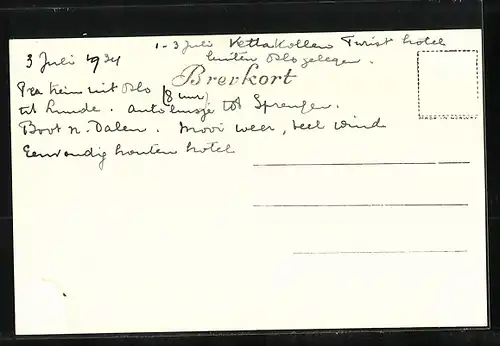 1-3 Juli Vettakollen Turist hotel
buiten Oslo gelegen.
3 Juli 1934
Brevkort
Pra trein uit Oslo (8 uur)
tot Lunde. autobusje tot Sprengen.
Boot n. Dalen. Mooi weer, veel wind
Eenvoudig houten hotel